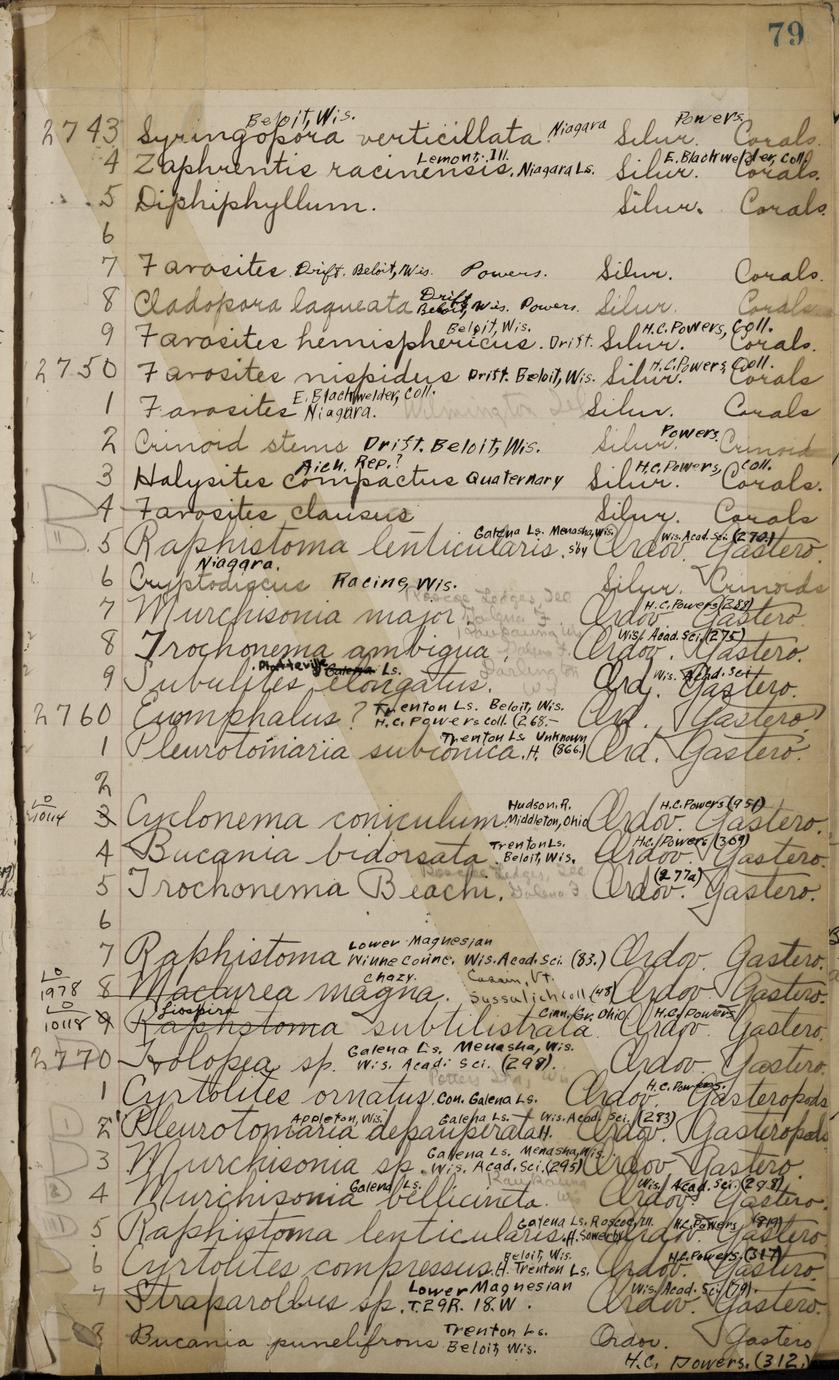 79
Beloit, Wis. Powers
2743 Syringopora verticillata. Niagara Silur. Corals.
Lemont. Ill. E. Blackwelder, Coll.
4 Zaphrentis racinensis. Niagara Ls. Silur. Corals.
5 Diphiphyllum. Silur. Corals
6
7 Favosites. Drift. Beloit, Wis. Powers. Silur. Corals.
Drift
8 Cladopora laqueata Beloit, Wis. Powers. Silur. Corals
Beloit, Wis. H.C. Powers, Coll.
9 Favosites hemisphericus. Drift. Silur. Corals.
H.C. Powers, Coll.
2750 Favosites nispidus Drift. Beloit, Wis. Silur. Corals
E. Blackwelder, Coll.
1 Favosites Niagara. Wilmington Ill Silur. Corals
Powers
2 Crinoid stems Drift. Beloit, Wis. Silur. Crinoid
Aich. Rep.? H.C. Powers, Coll.
3 Halysites compactus Quaternary Silur. Corals.
4 Favosites clausus Silur. Corals
Galena Ls. Menasha, Wis. Wis. Acad. Sci. (272)
5 Raphistoma lenticularis. s'by Ordov. Gastero.
Niagara.
6 Cryptodiscus Racine, Wis. Silur. Crinoids
Roscoe Ledges, Ill
H.C. Powers (288)
7 Murchisonia major. Galena F. Ordov. Gastero.
Wis. Acad. Sci. (275)
8 Trochonema ambigua. Ordov. Gastero.
Platteville Galena Ls. Darlington Wis. Acad. Sci
9 Subulites elongatus. Ord. Gastero.
Trenton Ls. Beloit, Wis.
2760 Eumphalus? H.C. Powers Coll. (268.- Ord. Gastero
Trenton Ls Unknown
1 Pleurotomaria subconica. H. (866.) Ord. Gastero.
2
LO Hudson. R. H.C. Powers (951)
10114 3 Cyclonema coniculum Middleton, Ohio Ordov. Gastero.
Trenton Ls. H.C. Powers (369)
4 Bucania bidorsata. Beloit, Wis. Ordov. Gastero.
Roscoe Ledges, Ill (277a)
5 Trochonema Beachi. Galena F Ordov. Gastero.
6
Lower Magnesian
7 Raphistoma Winneconne. Wis. Acad. Sci. (83.) Ordov. Gastero.
LO Chazy. Cassin, Vt.
1978 8 Maclurea magna. (48) Ordov. Gastero.
LO Liospira Cinn. Gr. Ohio H.C. Powers
10118 9 Raphstoma subtilistrata Ordov. Gastero.
Galena Ls. Menasha, Wis.
2770 Holopea sp. Wis. Acad. Sci. (298). Ordov. Gastero.
H.C. Powers.
1 Cyrtolites ornatus. Con. Galena Ls. Ordov. Gasteropods
Appleton, Wis. Galena Ls. - Wis. Acad. Sci. (283)
2 Pleurotomaria depauperata H. Ordov. Gasteropods
Galena Ls. Menasha, Wis.
3 Murchisonia sp. Wis. Acad. Sci. (295) Ordov. Gastero.
Galena Ls. Wis. Acad. Sci.
4 Murchisonia bellicincta. Ordov. Gastero.
Galena Ls. Roscoe, Ill. H.C. Powers (819)
5 Raphistoma lenticularis. H. Sowerby Ordov. Gastero.
Beloit, Wis. H.C. Powers. (317)
6 Cyrtolites compressus. H. Trenton Ls. Ordov. Gastero.
Lower Magnesian Wis. Acad. Sci. (79).
7 Straparollus sp. T.29R. 18.W. Ordov. Gastero.
Trenton Ls.
8 Bucania punelifrons Beloit, Wis. Ordov. Gastero
H.C. Powers. (312.)